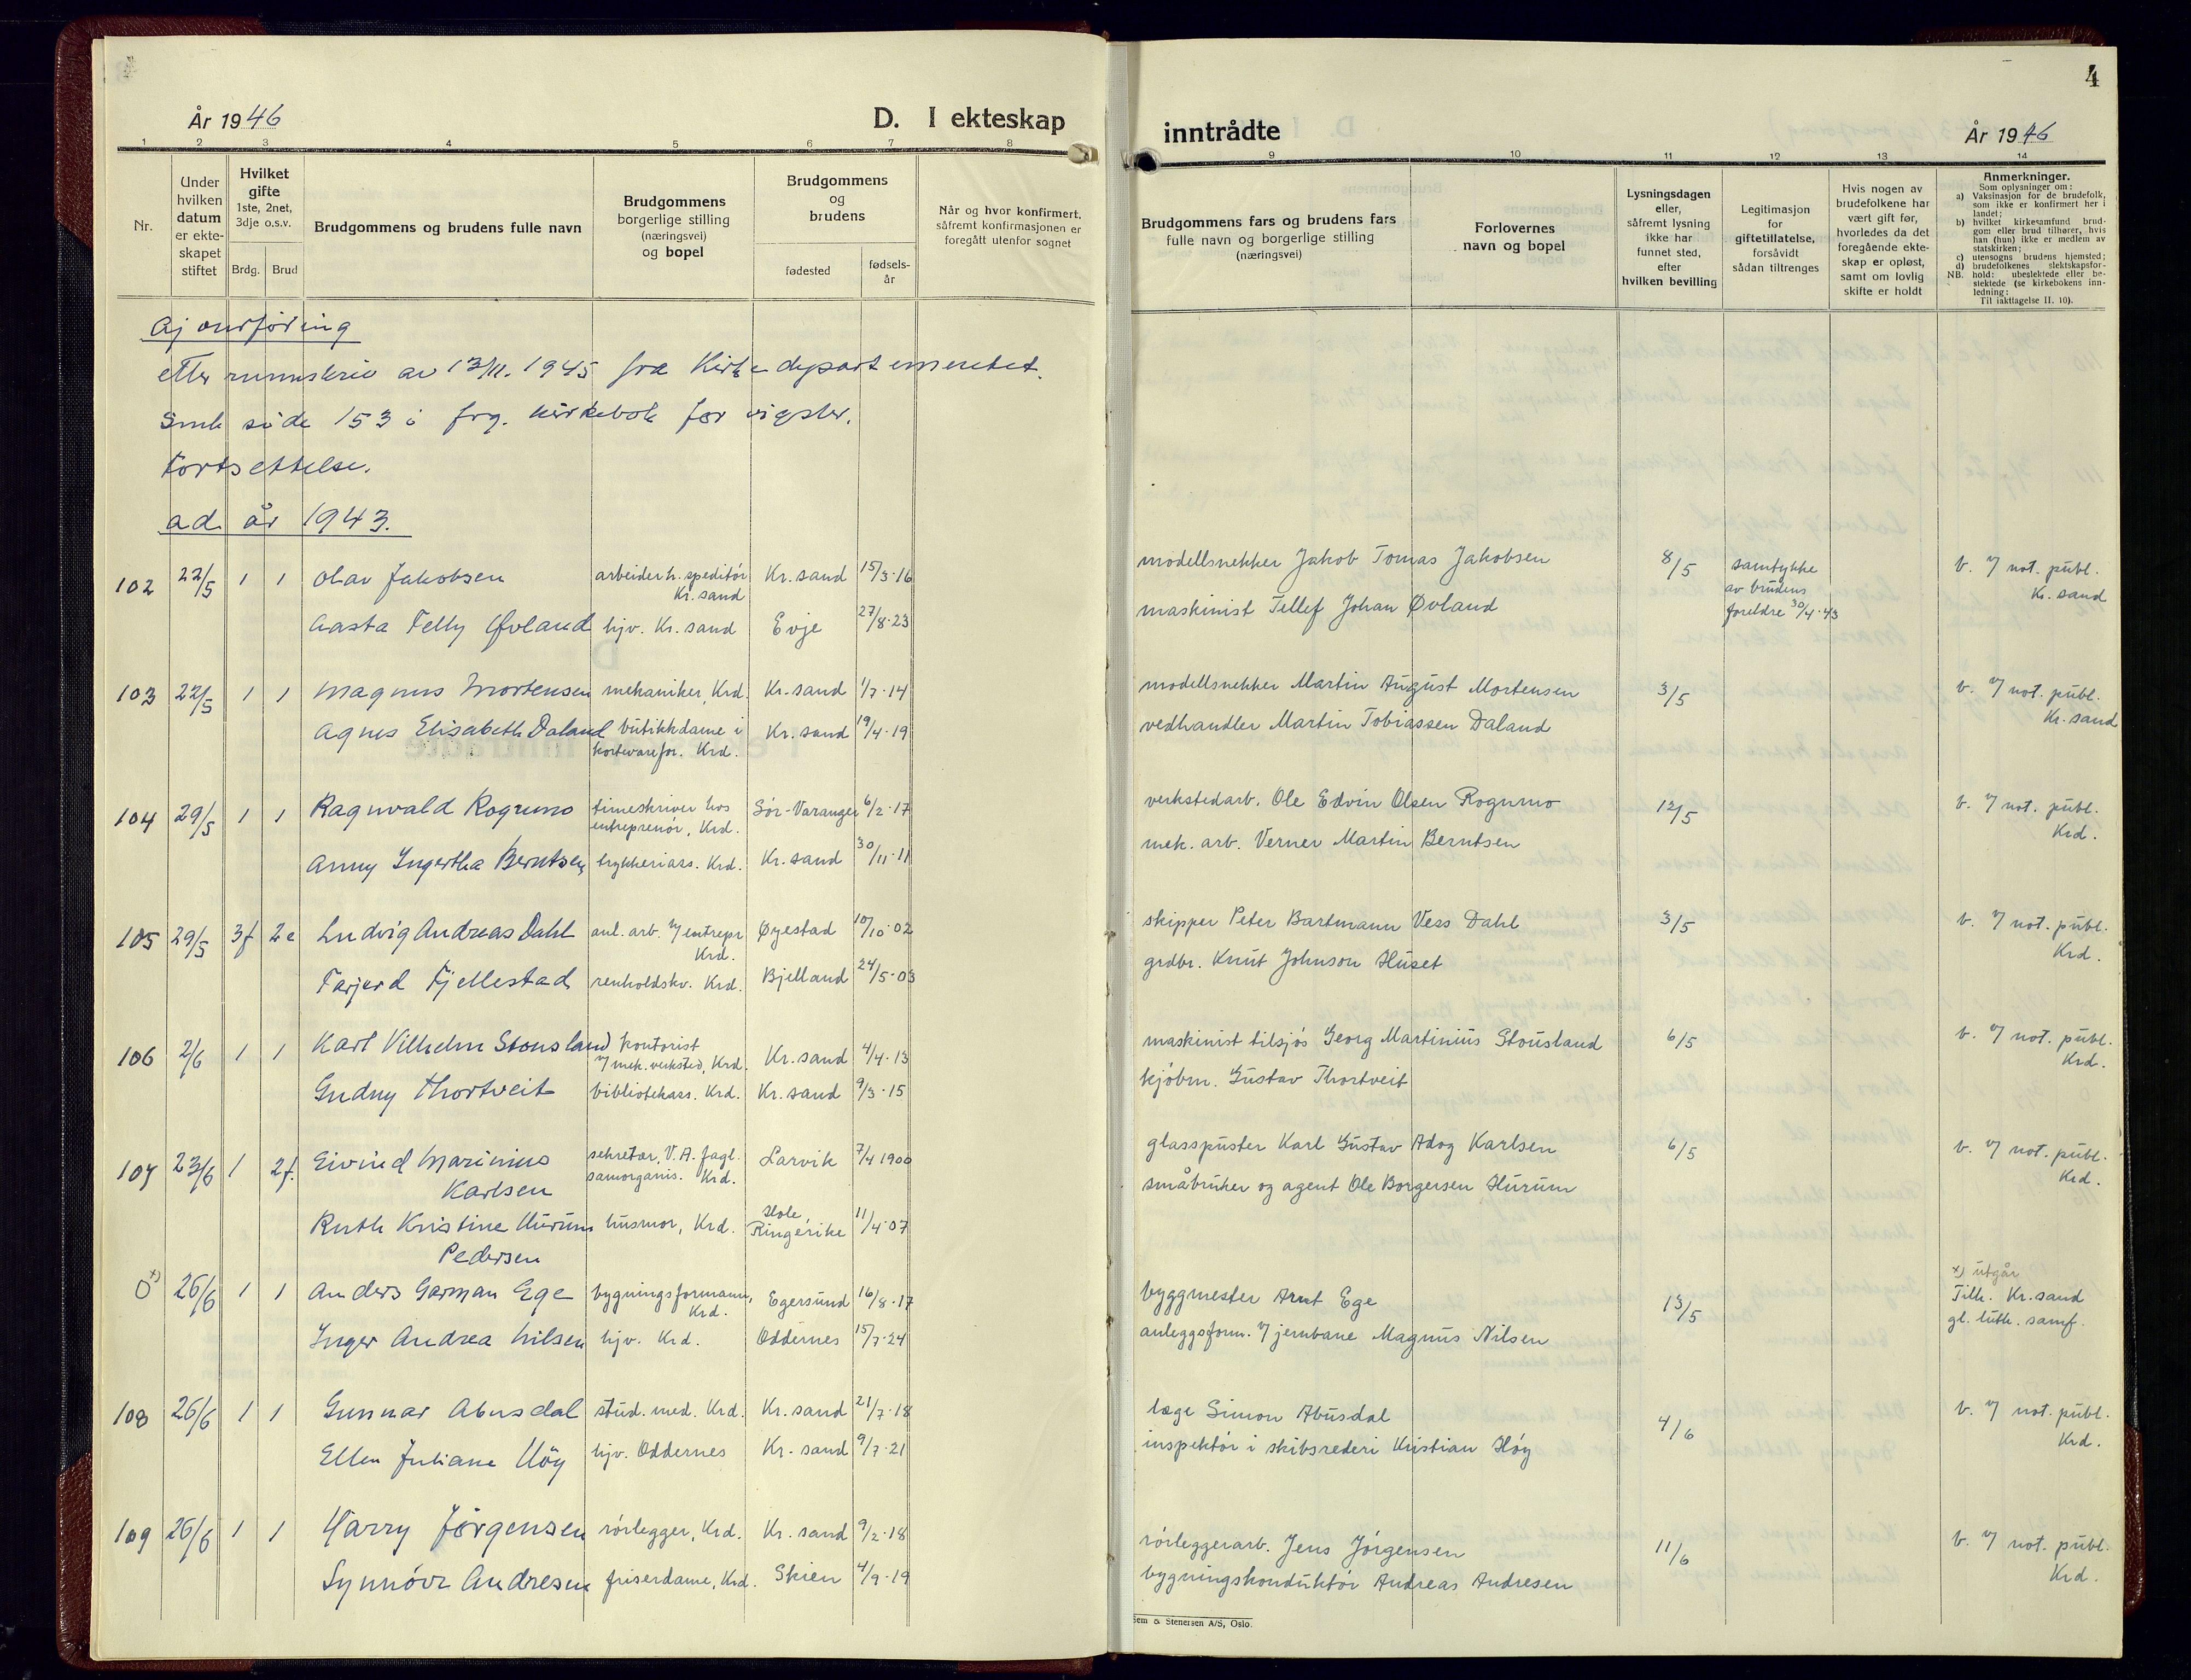 4
År 1946
D. I ekteskap
inntrådte
År 1946
1 2 3 4 5 6 7 8 9 10 11 12 13 14
Nr.
Under hvilken datum er ekteskapet stiftet
Hvilket gifte
1ste, 2net, 3dje o.s.v.
Brdg. Brud
Brudgommens og brudens fulle navn
Brudgommens borgerlige stilling (næringsvei) og bopel
Brudgommens og brudens
fødested
fødselsår
Når og hvor konfirmert, såfremt konfirmasjonen er foregått utenfor sognet
Brudgommens fars og brudens fars fulle navn og borgerlige stilling (næringsvei)
Forlovernes navn og bopel
Lysningsdagen eller, såfremt lysning ikke har funnet sted, efter hvilken bevilling
Legitimasjon for giftetillatelse, forsåvidt sådan tiltrenges
Hvis nogen av brudefolkene har vært gift før, hvorledes da det foregående ekteskap er opløst, samt om lovlig skifte er holdt
Anmerkninger.
Som oplysninger om:
a) Vaksinasjon for de brudefolk, som ikke er konfirmert her i landet;
b) hvilket kirkesamfund brudgom eller brud tilhører, hvis han (hun) ikke er medlem av statskirken;
c) utensogns brudens hjemsted;
d) brudefolkenes slektskapsforhold: ubeslektede eller beslektede (se kirkebokens innledning:
NB.
Til iakttagelse II. 10).
Ajourføring
etter rundskriv av 13/11. 1945 fra Kirkedepartementet.
Smh side 153 i frg. kirkebok for vigsler.
Fortsettelse.
ad år 1943.
102 22/5 1 1 Olav Jakobsen arbeider h. speditør Kr.sand Kr.sand 15/3-16 modellsnekker Jakob Tomas Jakobsen 8/5 samtykke av brudens foreldre 30/4-43 b. v/ not. publ. Kr.sand
Aasta Telly Øvland hjv. Kr.sand Evje 27/8-23 maskinist Tellef Johan Øvland
103 22/5 1 1 Magnus Mortensen mekaniker, Krd. Kr.sand 1/7-14 modellsnekker Martin August Mortensen 3/5 b. v/ not. publ. Kr.sand
Agnes Elisabeth Daland butikkdame i kortevarefor. Krd. Kr.sand 19/4-19 vedhandler Martin Tobiassen Daland
104 29/5 1 1 Ragnvald Rogumo timeskriver hos entreprenør, Krd. Sør-Varanger 6/2-17 verkstedarb. Ole Edvin Olsen Rogumo 12/5 b. v/ not. publ. Krd.
Anny Ingertha Berntsen trykkeriass. Krd. Kr.sand 30/11-11 mek. arb. Verner Martin Berntsen
105 29/5 3f 2e Ludvig Andreas Dahl anl. arb. v/ entrepr Krd. Øyestad 10/10-02 skipper Peter Bartmann Vess Dahl 3/5 b. v/ not. publ. Krd.
Tarjerd Fjellestad renholdskv. Krd. Bjelland 24/5-03 grdbr. Knut Johnson Huset
106 2/6 1 1 Karl Vilhelm Stousland kontorist v/ mek. verksted, Krd. Kr.sand 4/4-13 maskinist tilsjøs Georg Martinius Stousland 6/5 b. v/ not. publ. Krd.
Gudny Thortveit bibliotekass. Krd. Kr.sand 9/3-15 kjøbm. Gustav Thortveit
107 23/6 1 2f. Eivind Marinius Karlsen sekretær V.A. fagl. samorganis. Krd. Larvik 7/4 1900 glasspuster Karl Gustav Adog Karlsen 6/5 b. v/ not. publ. Krd.
Ruth Kristine Hurum Pedersen husmor, Krd. Hole, Ringerike 11/4-07 småbruker og agent Ole Borgersen Hurum
0 x) 26/6 1 1 Anders Garman Ege bygningsformann, Krd. Egersund 16/8-17 byggmester Arnt Ege 13/5 x) utgår Tilh. Kr.sand gl. luth. samf.
Inger Andrea Nilsen hjv. Krd. Oddernes 15/7-24 anleggsform. v/ jernbane Magnus Nilsen
108 26/6 1 1 Gunnar Abusdal stud. med. Krd. Kr.sand 21/7-18 læge Simon Abusdal 4/6 b. v/ not. publ. Krd.
Ellen Juliane Høy hjv. Oddernes Kr.sand 9/7-21 inspektør i skibsrederi Kristian Høy
109 26/6 1 1 Harry Jørgensen rørlegger, Krd. Kr.sand 9/2-18 rørleggerarb. Jens Jørgensen 11/6 b. v/ not. publ. Krd.
Synnøve Andresen friserdame, Krd. Skien 4/9-19 bygningskonduktør Andreas Andresen
Sem & Stenersen A/S, Oslo.